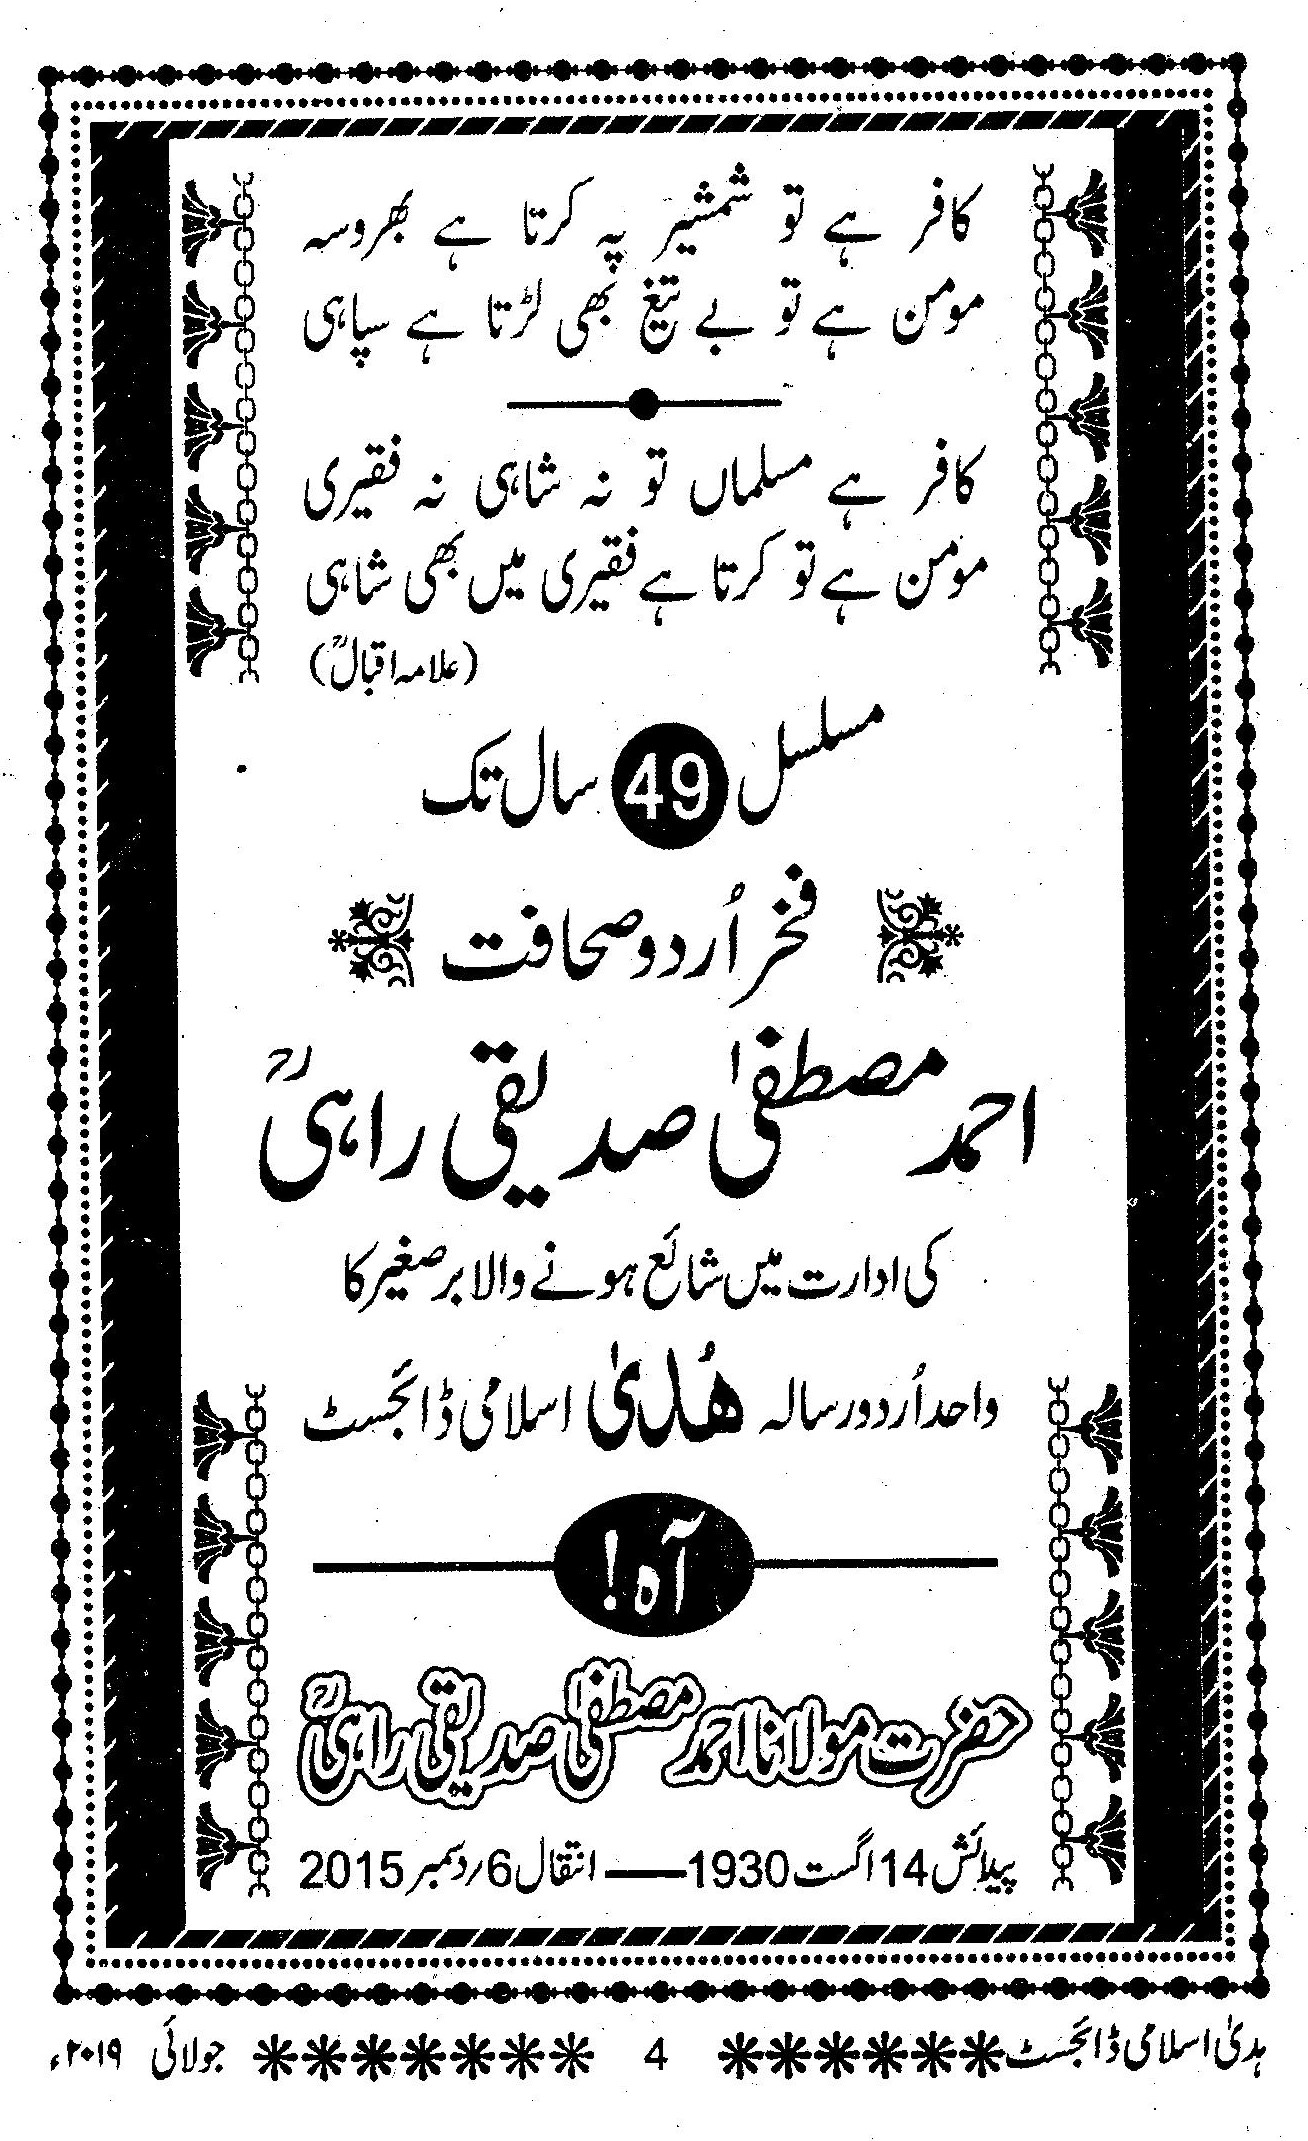 کافر ہے تو شمشیر پہ کرتا ہے بھروسہ
مومن ہے تو بے تیغ بھی لڑتا ہے سپاہی
کافر ہے مسلماں تو نہ شاہی نہ فقیری
مومن ہے تو کرتا ہے فقیری میں بھی شاہی
(علامہ اقبالؒ)
مسلسل 49 سال تک
فخر اُردو صحافت
احمد مصطفیٰ صدیقی راہیؒ
کی ادارت میں شائع ہونے والا برصغیر کا
واحد اُردو رسالہ ھُدیٰ اسلامی ڈائجسٹ
آہ!
حضرت مولانا احمد مصطفیٰ صدیقی راہیؒ
پیدائش 14 اگست 1930 — انتقال 6؍دسمبر 2015
ہدیٰ اسلامی ڈائجسٹ 4 جولائی ۲۰۱۹ء